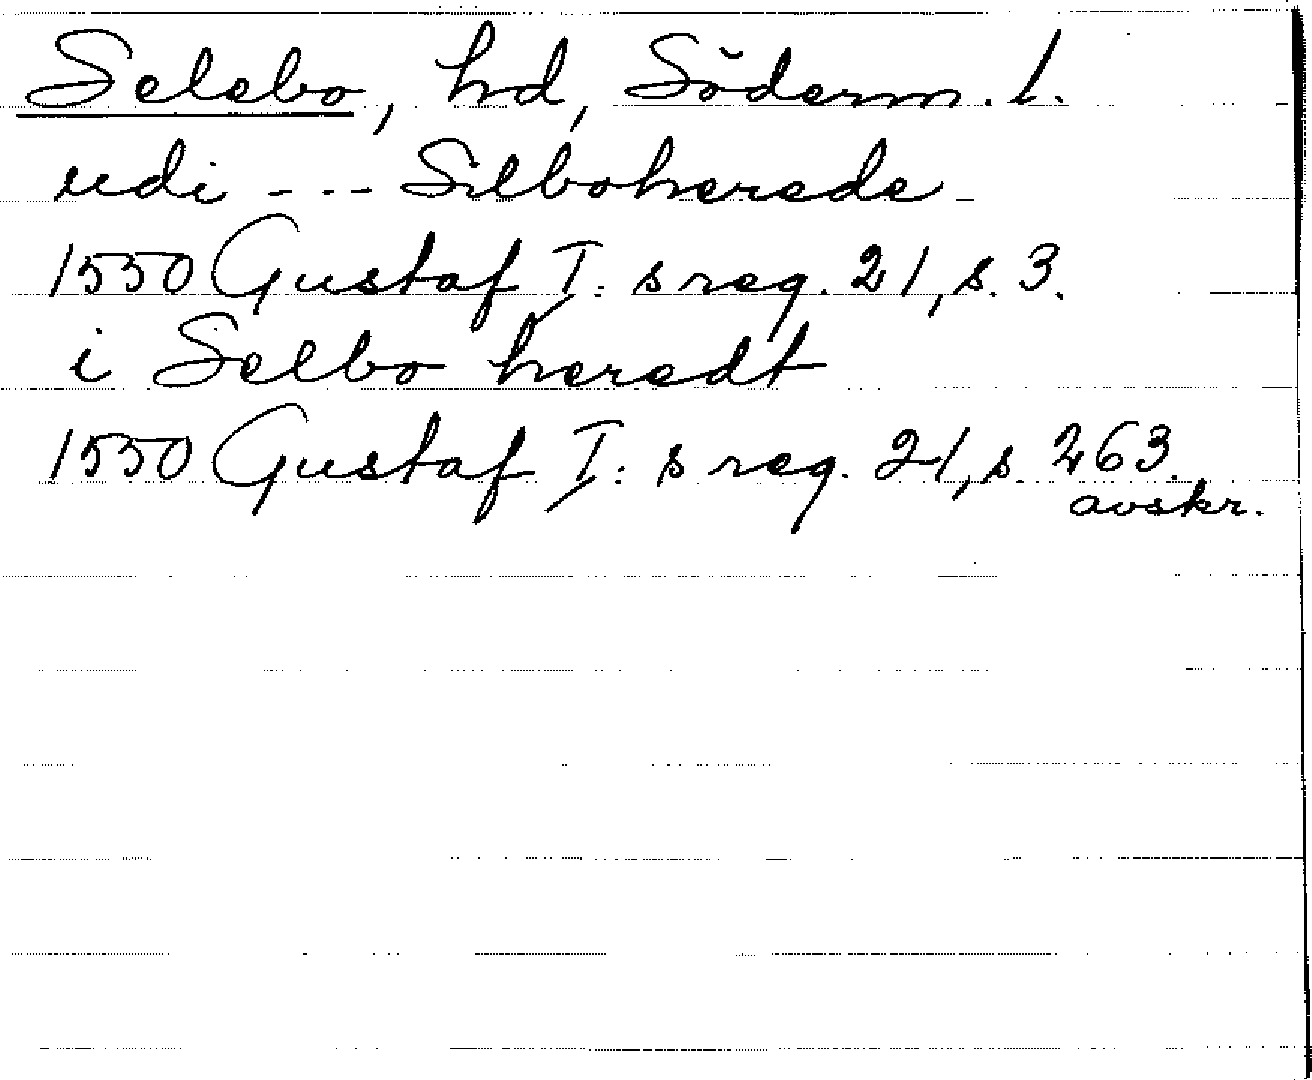 Selebo, hd, Söderm. l.
udi --- Silboherede -
1550 Gustaf I: s reg. 21, s. 3.
i Selbo heredt
1550 Gustaf I: s reg. 21, s. 263.
avskr.